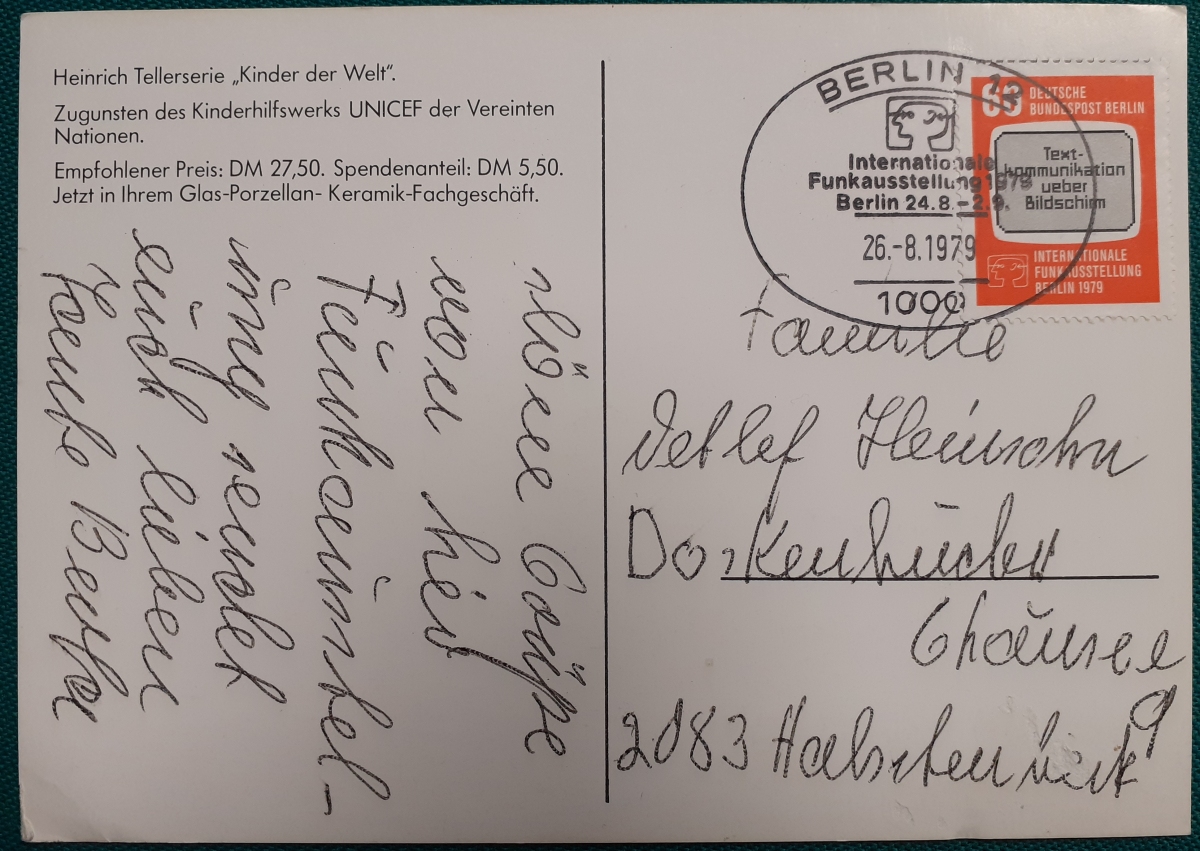 Heinrich Tellerserie „Kinder der Welt“.
Zugunsten des Kinderhilfswerks UNICEF der Vereinten
Nationen.
Empfohlener Preis: DM 27,50. Spendenanteil: DM 5,50.
Jetzt in Ihrem Glas-Porzellan- Keramik-Fachgeschäft.
Grüße
von hir
sendet
euch lieben
Tante
BERLIN 12
Internationale
Funkausstellung 1979
Berlin 24.8.–2.9.
26.-8.1979
1000
DEUTSCHE
BUNDESPOST BERLIN
Text-
kommunikation
ueber
Bildschirm
INTERNATIONALE
FUNKAUSSTELLUNG
BERLIN 1979
Familie
Detlef Heinsohn
Chausee
9
2083